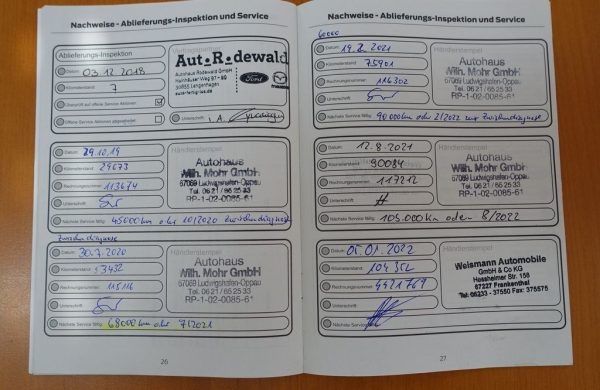 Nachweise - Ablieferungs-Inspektion und Service
Ablieferungs-Inspektion
Datum: 03.12.2018
Kilometerstand: 7
Überprüft auf offene Service Aktionen
Offene Service Aktionen abgearbeitet
Vertragspartner
Aut•R•dewald
Autohaus Rodewald GmbH
30855 Langenhagen
Ford
mazda
Unterschrift i.A.
Datum: 29.10.19
Kilometerstand: 29673
Rechnungsnummer: 113674
Unterschrift:
Händlerstempel
Autohaus
Wilh. Mohr GmbH
67069 Ludwigshafen-Oppau
Tel. 06 21 / 65 25 33
RP-1-02-0085-61
Nächste Service fällig: 45000 km oder 10/2020 Zwischendiagnose
Zwischendiagnose
Datum: 30.7.2020
Kilometerstand: 53432
Rechnungsnummer: 115116
Unterschrift:
Händlerstempel
Autohaus
Wilh. Mohr GmbH
67069 Ludwigshafen-Oppau
Tel. 06 21 / 65 25 33
RP-1-02-0085-61
Nächste Service fällig: 68000 km oder 7/2021
26
Nachweise - Ablieferungs-Inspektion und Service
60000
Datum: 19.2.2021
Kilometerstand: 75901
Rechnungsnummer: 116302
Unterschrift:
Händlerstempel
Autohaus
Wilh. Mohr GmbH
67069 Ludwigshafen-Oppau
Tel. 06 21 / 65 25 33
RP-1-02-0085-61
Nächste Service fällig: 90000 km oder 2/2022 Zwischendiagnose
Datum: 12.8.2021
Kilometerstand: 90084
Rechnungsnummer: 117212
Unterschrift:
Händlerstempel
Autohaus
Wilh. Mohr GmbH
67069 Ludwigshafen-Oppau
Tel. 06 21 / 65 25 33
RP-1-02-0085-61
Nächste Service fällig: 105.000 Km oder 8/2022
Datum: 05.01.2022
Kilometerstand: 104352
Rechnungsnummer: 4421769
Unterschrift:
Händlerstempel
Weismann Automobile
GmbH & Co KG
Hessheimer Str. 158
67227 Frankenthal
Tel. 06233 - 37550 Fax: 375575
Nächste Service fällig:
27